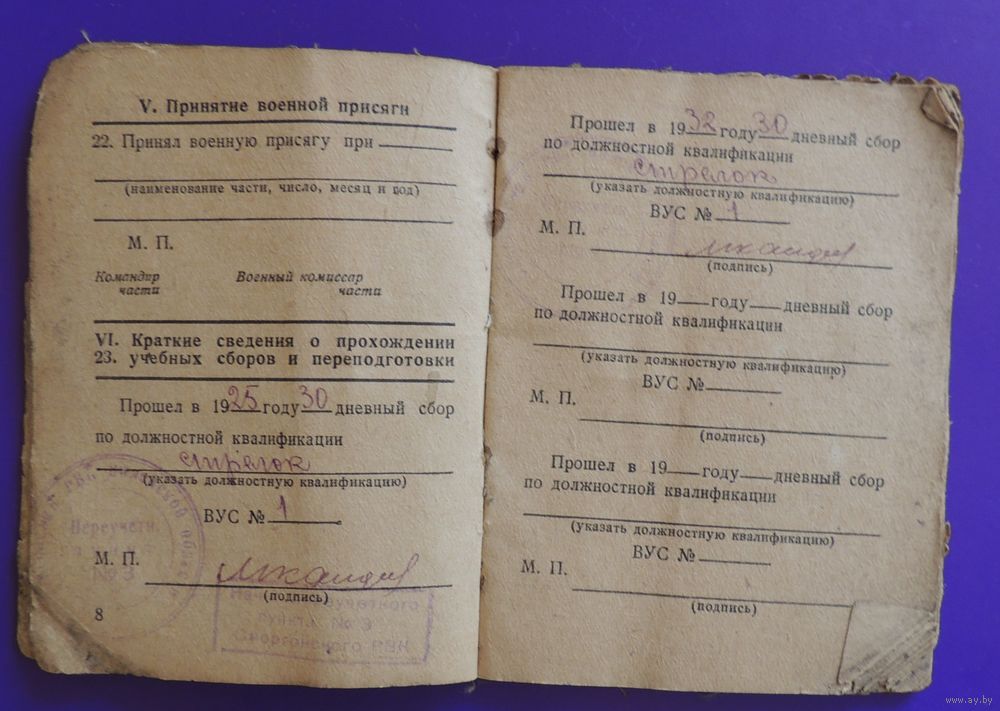 V. Принятие военной присяги
22. Принял военную присягу при
(наименование части, число, месяц и год)
М. П.
Командир части
Военный комиссар части
VI. Краткие сведения о прохождении
23. учебных сборов и переподготовки
Прошел в 1925 году 30 дневный сбор
по должностной квалификации
стрелок
(указать должностную квалификацию)
ВУС № 1
М. П.
(подпись)
пункта № 3
Сморгонского РВК
8
Прошел в 1932 году 30 дневный сбор
по должностной квалификации
стрелок
(указать должностную квалификацию)
ВУС № 1
М. П.
(подпись)
Прошел в 19 году дневный сбор
по должностной квалификации
(указать должностную квалификацию)
ВУС №
М. П.
(подпись)
Прошел в 19 году дневный сбор
по должностной квалификации
(указать должностную квалификацию)
ВУС №
М. П.
(подпись)
www.ay.by